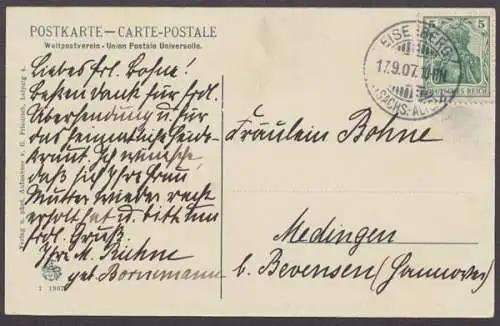 POSTKARTE — CARTE-POSTALE
Weltpostverein - Union Postale Universelle.
Liebes Frl. Bohne!
Besten Dank für frdl.
Übersendung u. für
das heimatliche Heide-
kraut. Ich wünsche,
daß sich Ihre Frau
Mutter wieder recht
erholt hat u. bitte um
frdl. Gruß
Ihre M. Kühne
geb. Bornemann
Verlag u. phot. Aufnahme v. G. Friedrich, Leipzig
1 1907
EISENBERG
17.9.07.
(SACHS.-ALT.)
5 5
DEUTSCHES REICH
Fräulein Bohne
Medingen
b. Bevensen (Hannover)